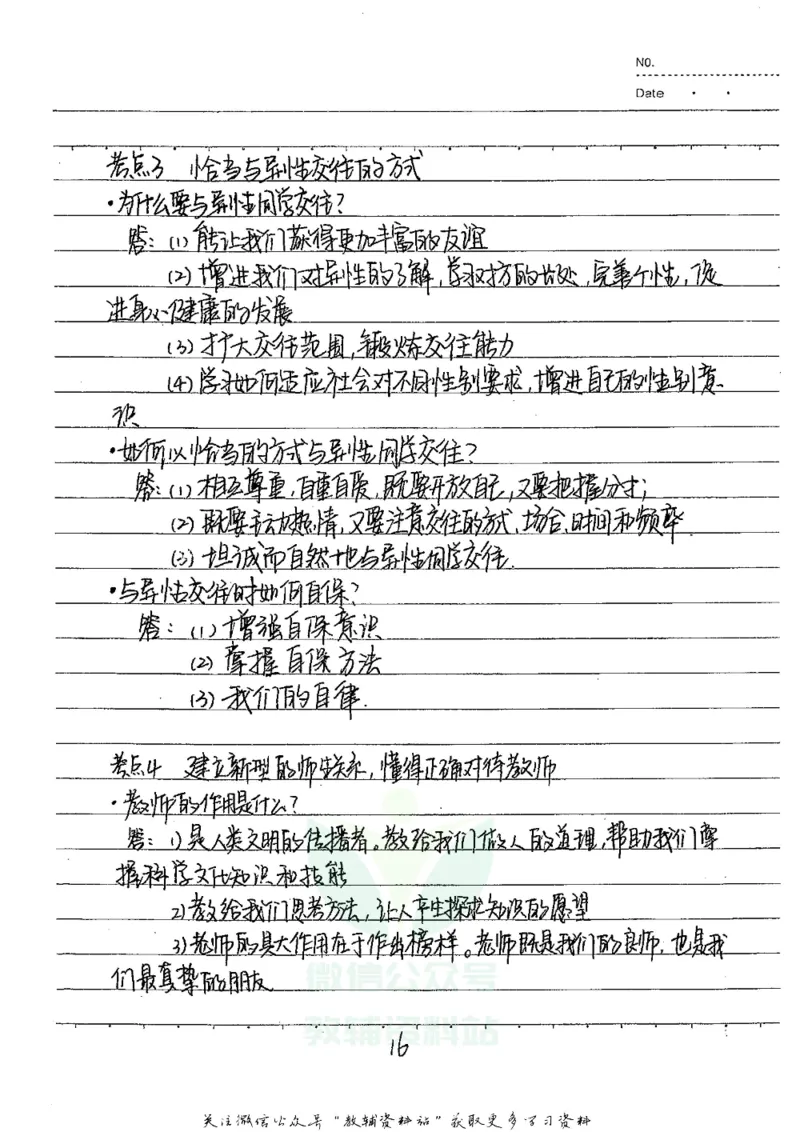 NO.
Date
考点3 恰当与异性交往的方式
·为什么要与异性同学交往?
答:(1)能让我们获得更加丰富的友谊
(2)增进我们对异性的了解,学习对方的长处,完善个性,促
进身心健康的发展
(3)扩大交往范围,锻炼交往能力
(4)学习如何适应社会对不同性别要求,增进自己的性别意
识
·如何以恰当的方式与异性同学交往?
答:(1)相互尊重,自重自爱,既要开放自己,又要把握分寸;
(2)既要主动热情,又要注意交往的方式、场合、时间和频率
(3)坦诚而自然地与异性同学交往.
·与异性交往时如何自保?
答:(1)增强自保意识
(2)掌握自保方法
(3)我们的自律.
考点4 建立新型的师生关系,懂得正确对待教师
·教师的作用是什么?
答:1)是人类文明的传播者。教给我们做人的道理,帮助我们掌
握科学文化知识和技能
2)教给我们思考方法,让人产生探求知识的愿望
3)老师的具大作用在于作出榜样。老师既是我们的良师,也是我
们最真挚的朋友
微信公众号
教辅资料站
16
关注微信公众号"教辅资料站"获取更多学习资料